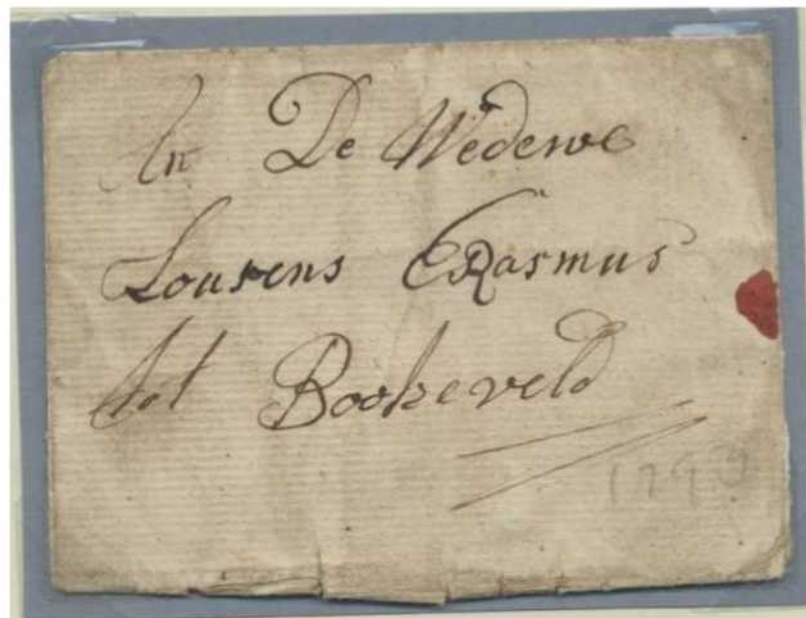 An De Wedewe
Lourens Erasmus
tot Bookeveld